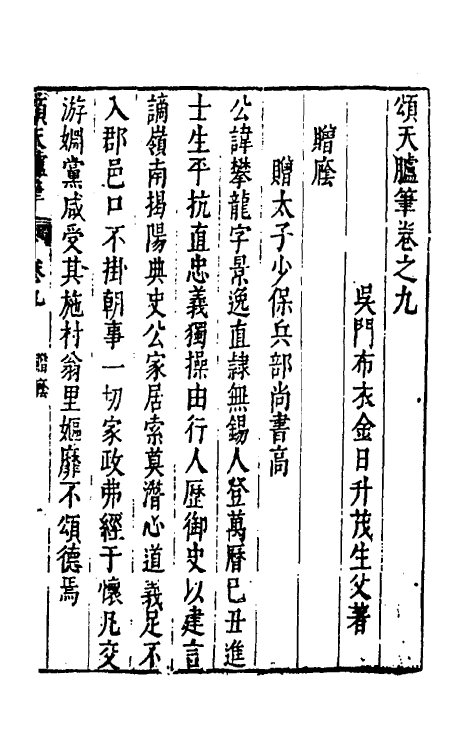 頌天臚筆卷之九
吳門布衣金日升茂生父著
贈廕
贈太子少保兵部尚書高
公諱攀龍字景逸直隷無錫人登萬曆己丑進
士生平抗直忠義獨操由行人歷御史以建言
謫嶺南揭陽典史公家居索莫潛心道義足不
入郡邑口不掛朝事一切家政弗經于懷凡交
游婣黨咸受其施村翁里嫗靡不頌德焉
頌天臚筆 卷九 贈廕 一